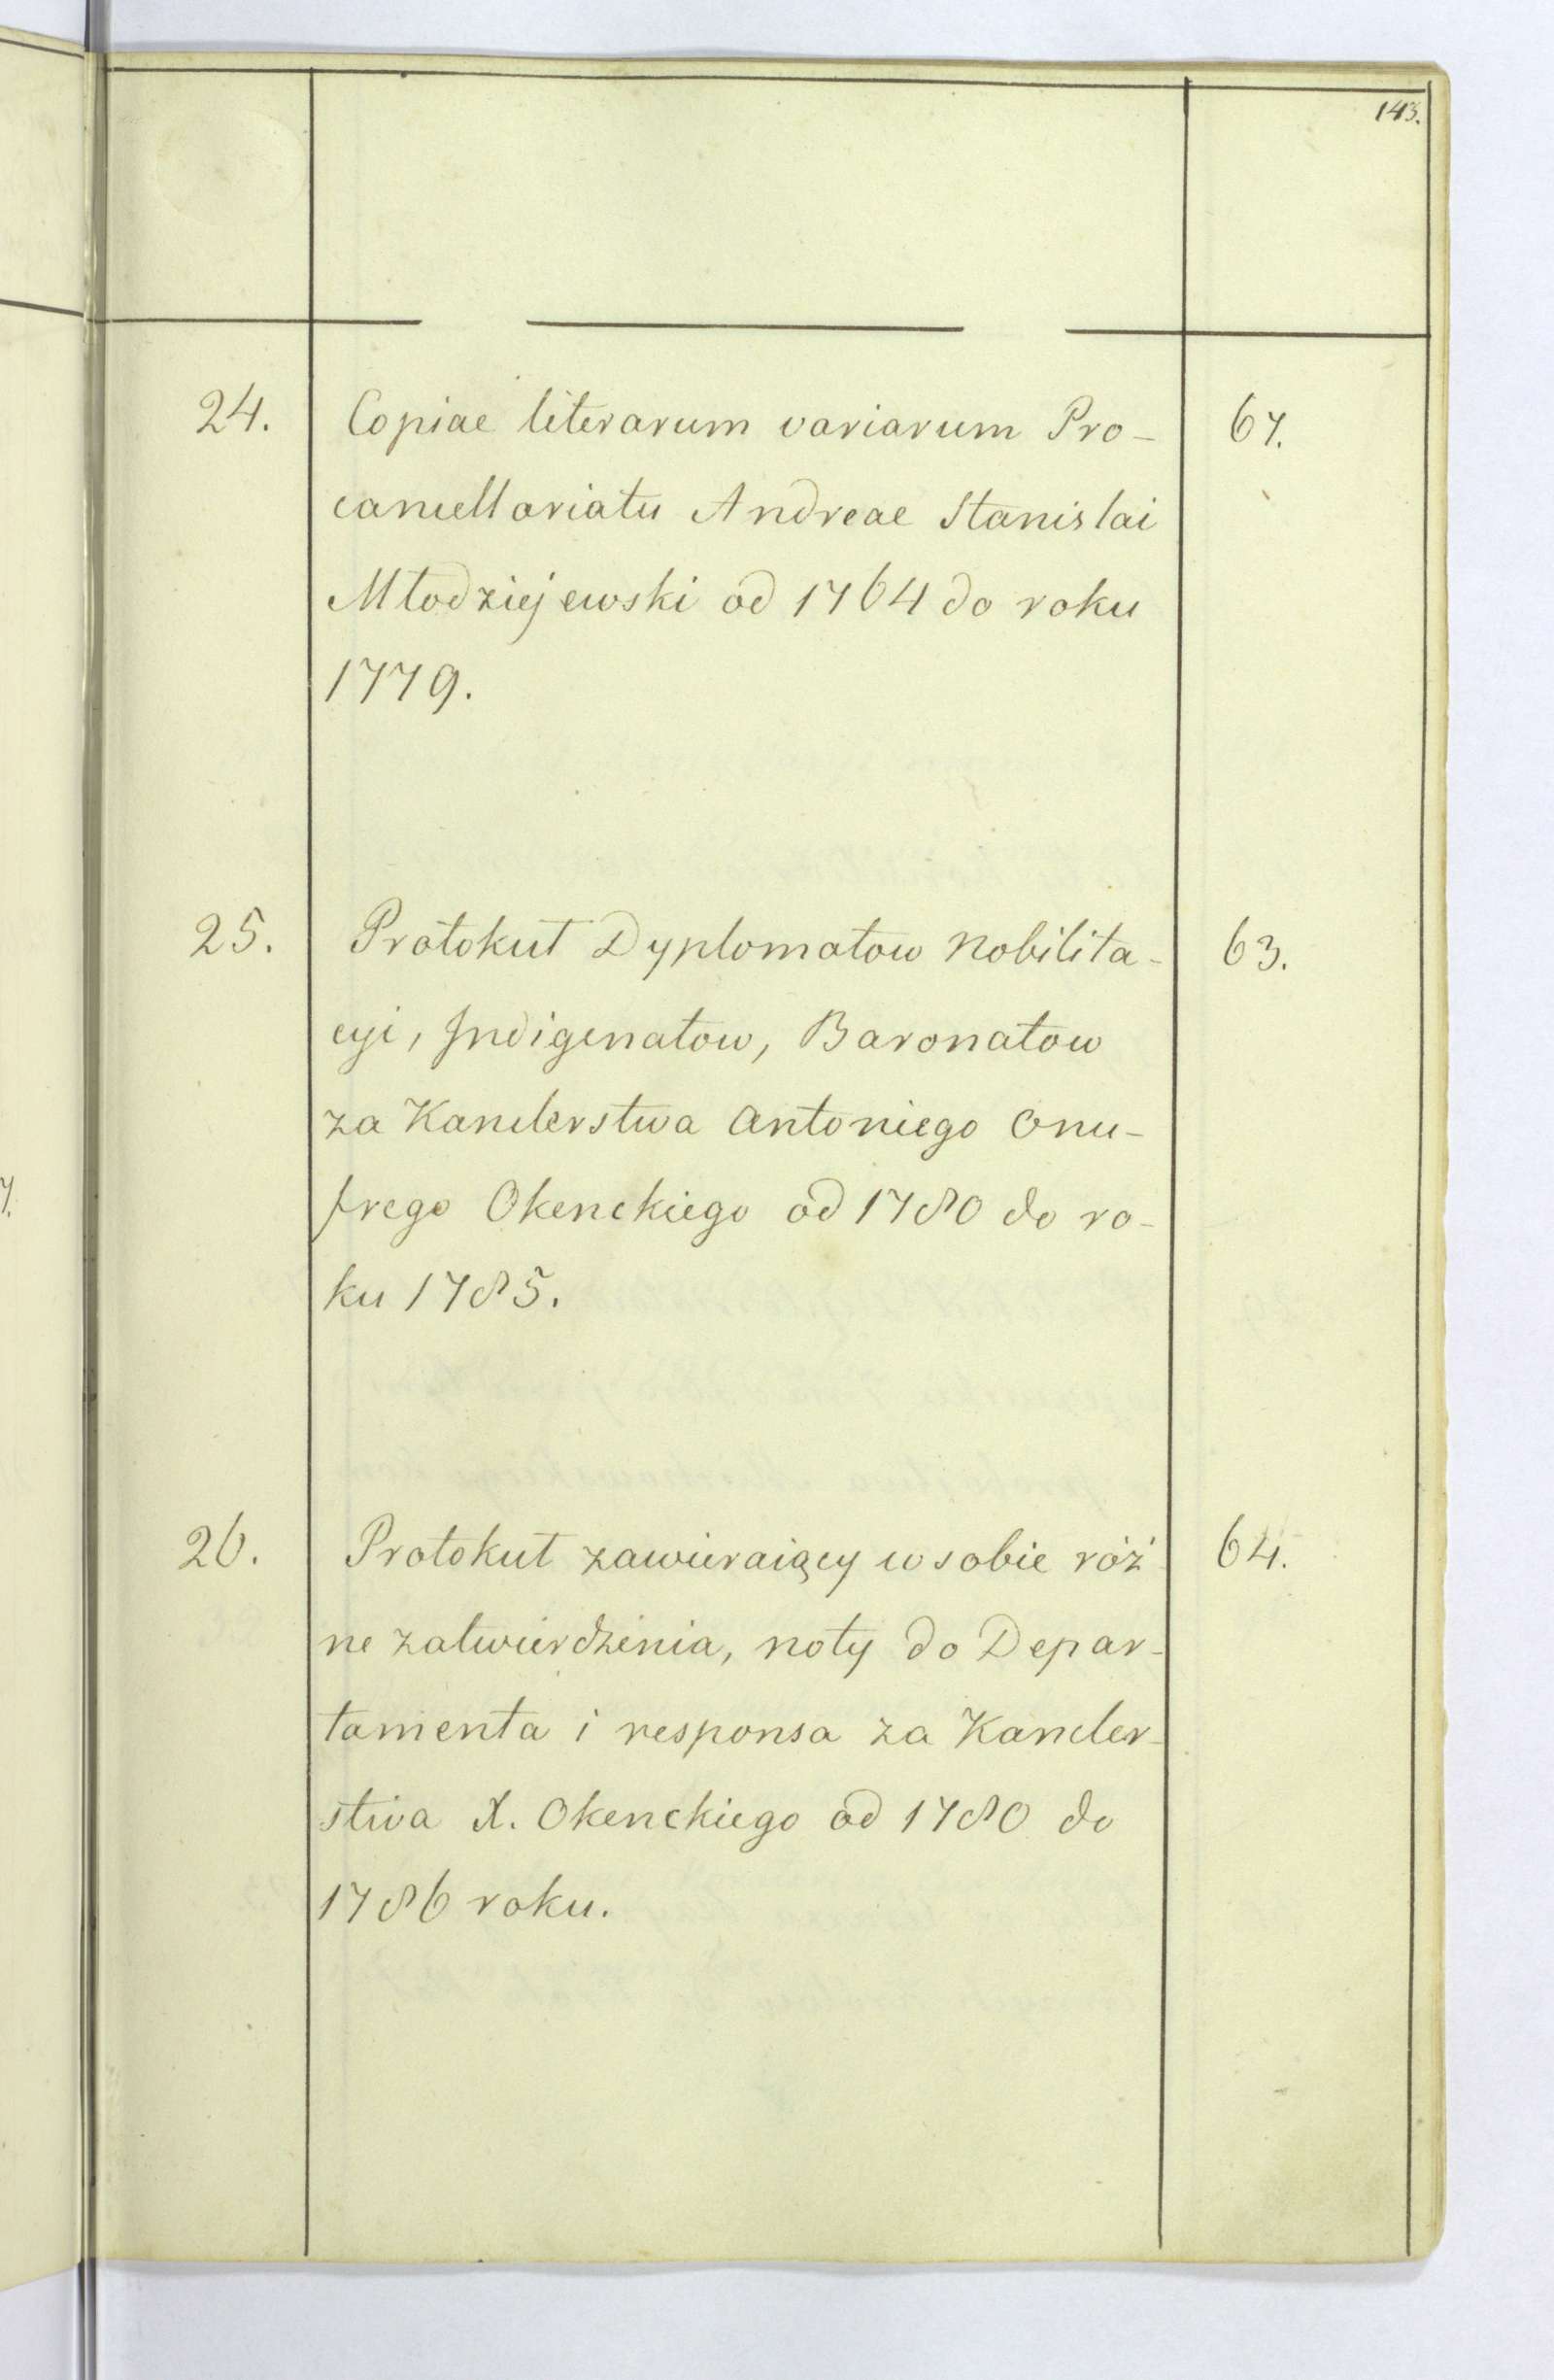 143.
24. Copiae literarum variarum Pro- 67.
cancellariatu Andreae Stanislai
Młodziejewski od 1764 do roku
1779.
25. Protokuł Dyplomatow Nobilita- 63.
cyi, Indigenatow, Baronatow
za Kanclerstwa Antoniego Onu-
frego Okenckiego od 1780 do ro-
ku 1785.
26. Protokuł zawieraiący w sobie róż 64.
ne zatwierdzenia, noty do Depar-
tamenta i responsa za Kancler-
stwa X. Okenckiego od 1780 do
1786 roku.
7.